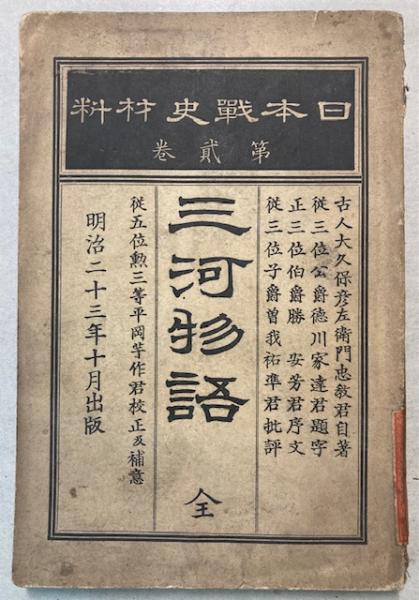 日本戰史材料
第貳卷
古人大久保彦左衛門忠教君自著
從三位公爵德川家達君題字
正三位伯爵勝安芳君序文
從三位子爵曽我祐準君批評
三河物語
全
從五位勲三等平岡芋作君校正及補意
明治二十三年十月出版